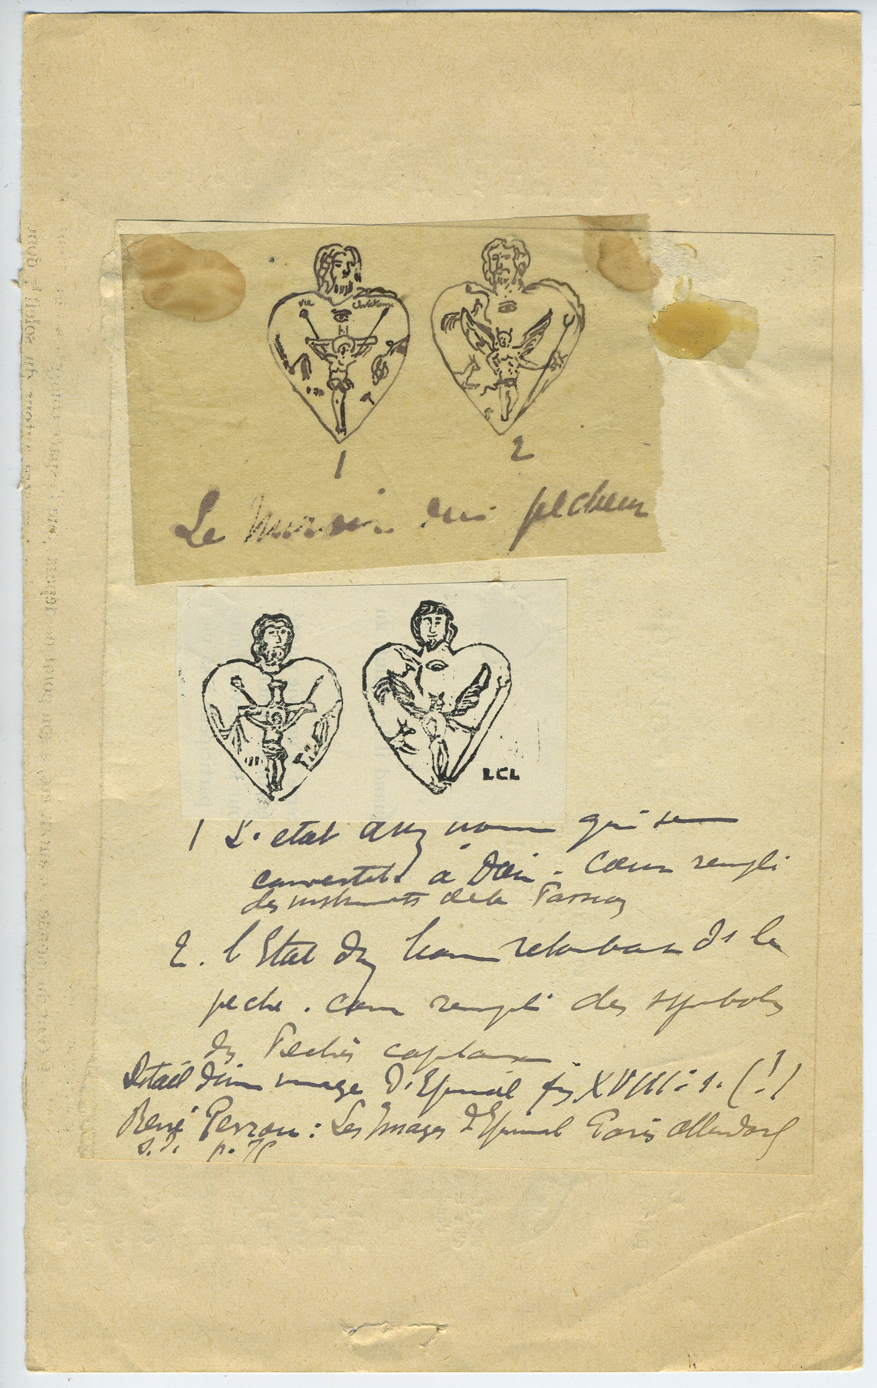 1 2
Le Miroir du pecheur
LCL
1 L'etat d'un homme qui se
convertit à Dieu. Cœur rempli
des instruments de la Passion
2. l'Etat d'un homme retombant ds le
peché. Cœur rempli des symboles
des Pechés capitaux
Détail d'une image d'Epinal fin XVIII: s. (!)
René Perrou: Les Images d'Epinal Paris Ollendorf
s.d. p.